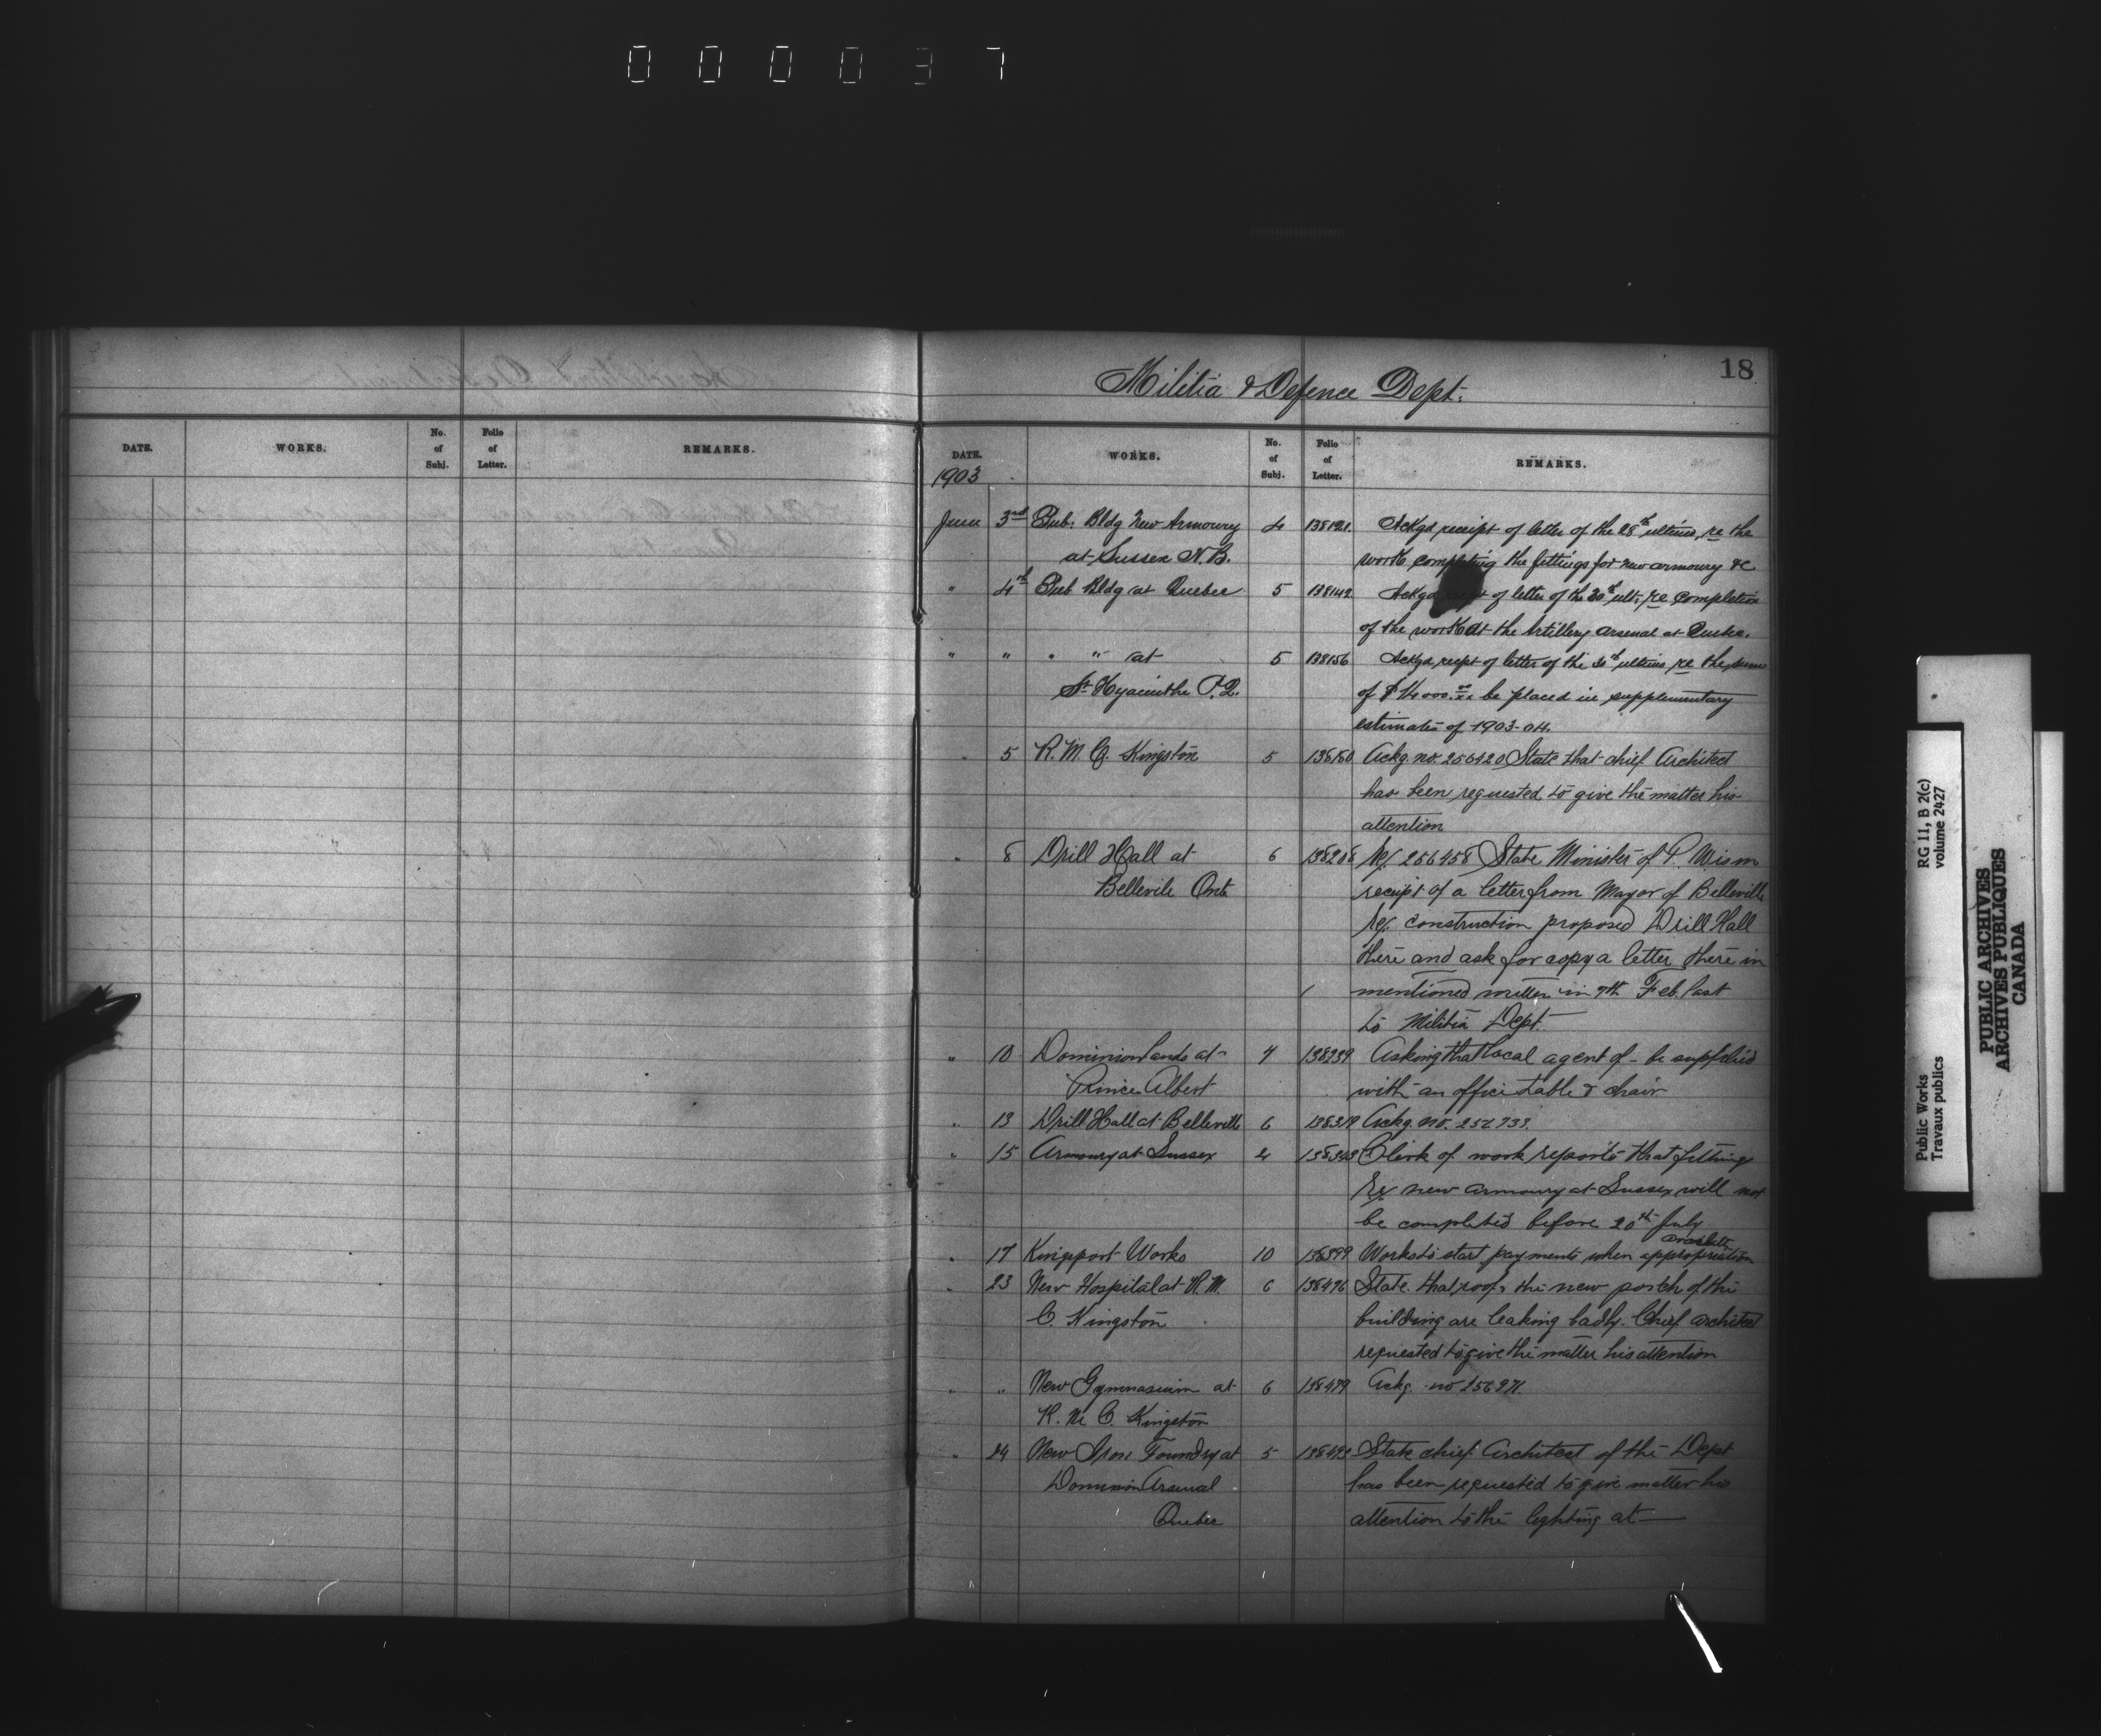 0 0 0 0 3 7
18
Militia & Defence Dept.
DATE. WORKS. No. of Subj. Folio of Letter. REMARKS.
DATE. WORKS. No. of Subj. Folio of Letter. REMARKS.
1903
June 3rd Pub. Bldg New Armoury 4 138121. Ackgd receipt of letter of the 28th ultimo, re the
at Sussex N.B. work completing the fittings for new armoury &c
" 4th Pub Bldg at Quebec 5 138142 Ackgd of letter of the 30th ult: re completion
of the work at the Artillery Arsenal at Quebec.
" " " " at 5 138156 Ackgd receipt of letter of the ultimo, re the sum
St Hyacinthe P.Q. of $14000.oo/xx be placed in supplementary
estimates of 1903-04.
" 5 R. M. C. Kingston 5 138180 Ackg. no. 256420 State that chief Architect
has been requested to give the matter his
attention
" 8 Drill Hall at 6 138208 Ref 256458 State Minister of P. W is in
Bellevile Ont. receipt of a letter from Mayor of Belleville
Ref. construction proposed Drill Hall
there and ask for copy a letter there in
mentioned written in 7th Feb. last
to Militia Dept.
" 10 Dominion Lands at 4 138239 Asking that local agent of - be supplied
Prince Albert with an office table & chair
" 13 Drill Hall at Belleville 6 138319 Ackg. no.
" 15 Armoury at Sussex 4 138343 Clerk of work reports that fittings
Re new armoury at Sussex will not
be completed before 20th July
available
" 17 Kingsport Works 10 138399 Works to start payments when appropriation
" 23 New Hospital at R. M. 6 138476 State that roof & the new porch of the
C. Kingston building are leaking badly. Chief architect
requested to give the matter his attention
" " New Gymnasium at 6 138479 Ackg. no 256971.
R. M. C. Kingston
" 24 New Iron Foundry at 5 138493 State chief Architect of the Dept
Dominion Arsenal has been requested to give matter his
Quebec attention to the lighting at —
Public Works RG 11, B 2(c)
Travaux publics volume 2427
PUBLIC ARCHIVES
ARCHIVES PUBLIQUES
CANADA